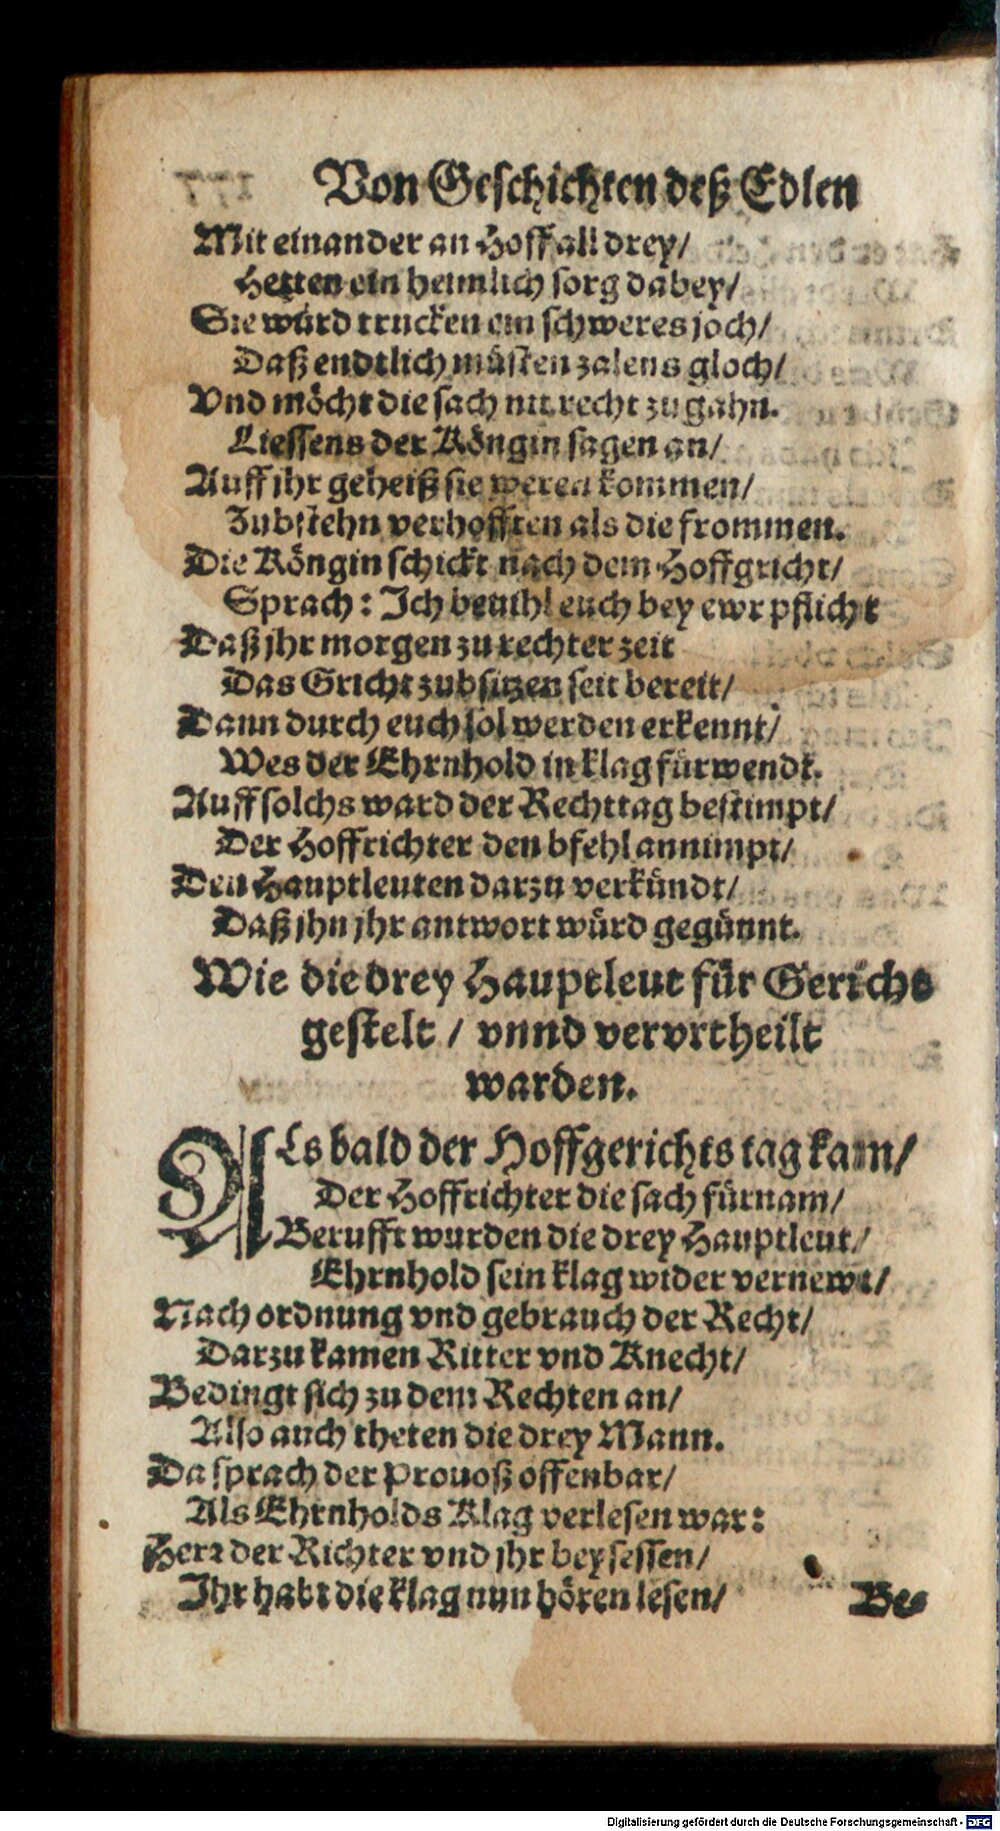 Von Geschichten deß Edlen
Mit einander an Hoff all drey/
Hetten ein heimlich sorg dabey/
Sie würd trucken ein schweres joch/
Daß endtlich müsten zalens gloch/
Vnd möcht die sach nit recht zu gahn.
Liessens der Köngin sagen an/
Auff jhr geheiß sie weren kommen/
Zubstehn verhofften als die frommen.
Die Köngin schickt nach dem Hoffgricht/
Sprach: Ich beuihl euch bey ewr pflicht
Daß jhr morgen zu rechter zeit
Das Gricht zubsitzen seit bereit/
Dann durch euch sol werden erkennt/
Wes der Ehrnhold in klag fürwendt.
Auff solchs ward der Rechttag bestimpt/
Der Hoffrichter den bfehl annimpt/
Den Hauptleuten darzu verkündt/
Daß jhn jhr antwort würd gegünnt.
Wie die drey Hauptleut für Gericht
gestelt / vnnd vervrtheilt
warden.
ALs bald der Hoffgerichts tag kam/
Der Hoffrichter die sach fürnam/
Berufft wurden die drey Hauptleut/
Ehrnhold sein klag wider vernewt/
Nach ordnung vnd gebrauch der Recht/
Darzu kamen Ritter vnd Knecht/
Bedingt sich zu dem Rechten an/
Also auch theten die drey Mann.
Da sprach der Prouoß offenbar/
Als Ehrnholds Klag verlesen war:
Herr der Richter vnd jhr beysessen/
Ihr habt die klag nun hören lesen/
Be-
Digitalisierung gefördert durch die Deutsche Forschungsgemeinschaft - DFG